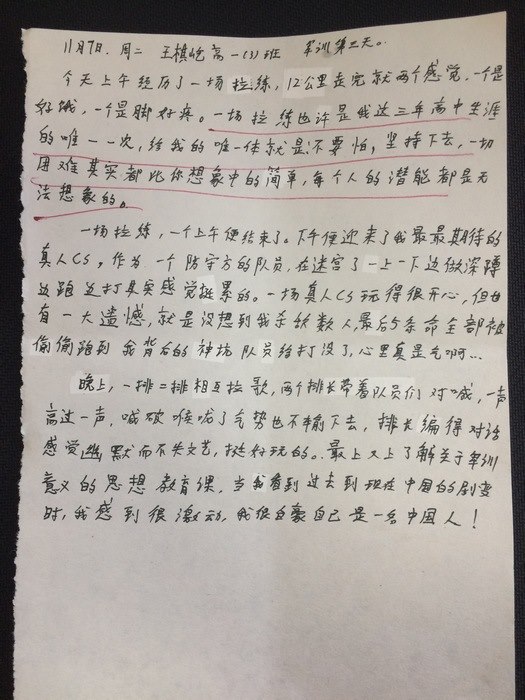 11月7日. 周二 王棋屹高一(3)班 军训第二天。
今天上午经历了一场拉练,12公里走完就两个感觉,一个是
好饿,一个是脚好疼。一场拉练也许是我这三年高中生涯
的唯一一次,给我的唯一体就是不要怕,坚持下去,一切
困难其实都比你想象中的简单,每个人的潜能都是无
法想象的。
一场拉练,一个上午便结束了。下午便迎来了我最最期待的
真人CS,作为一个防守方的队员,在迷宫了一上一下边做深蹲
边跑边打其实感觉挺累的。一场真人CS玩得很开心,但也
有一大遗憾,就是没想到我杀敌数人,最后5条命全部被
偷偷跑到我背后的神坑队员给打没了,心里真是气啊...
晚上,一排二排相互拉歌,两个排长带着队员们对喊,一声
高过一声,喊破喉咙了气势也不输下去,排长编得对话
感觉幽默而不失文艺,挺好玩的。最上又上了解关于军训
意义的思想教育课,当我看到过去到现在中国的剧变
时,我感到很激动,我很自豪自己是一名中国人!